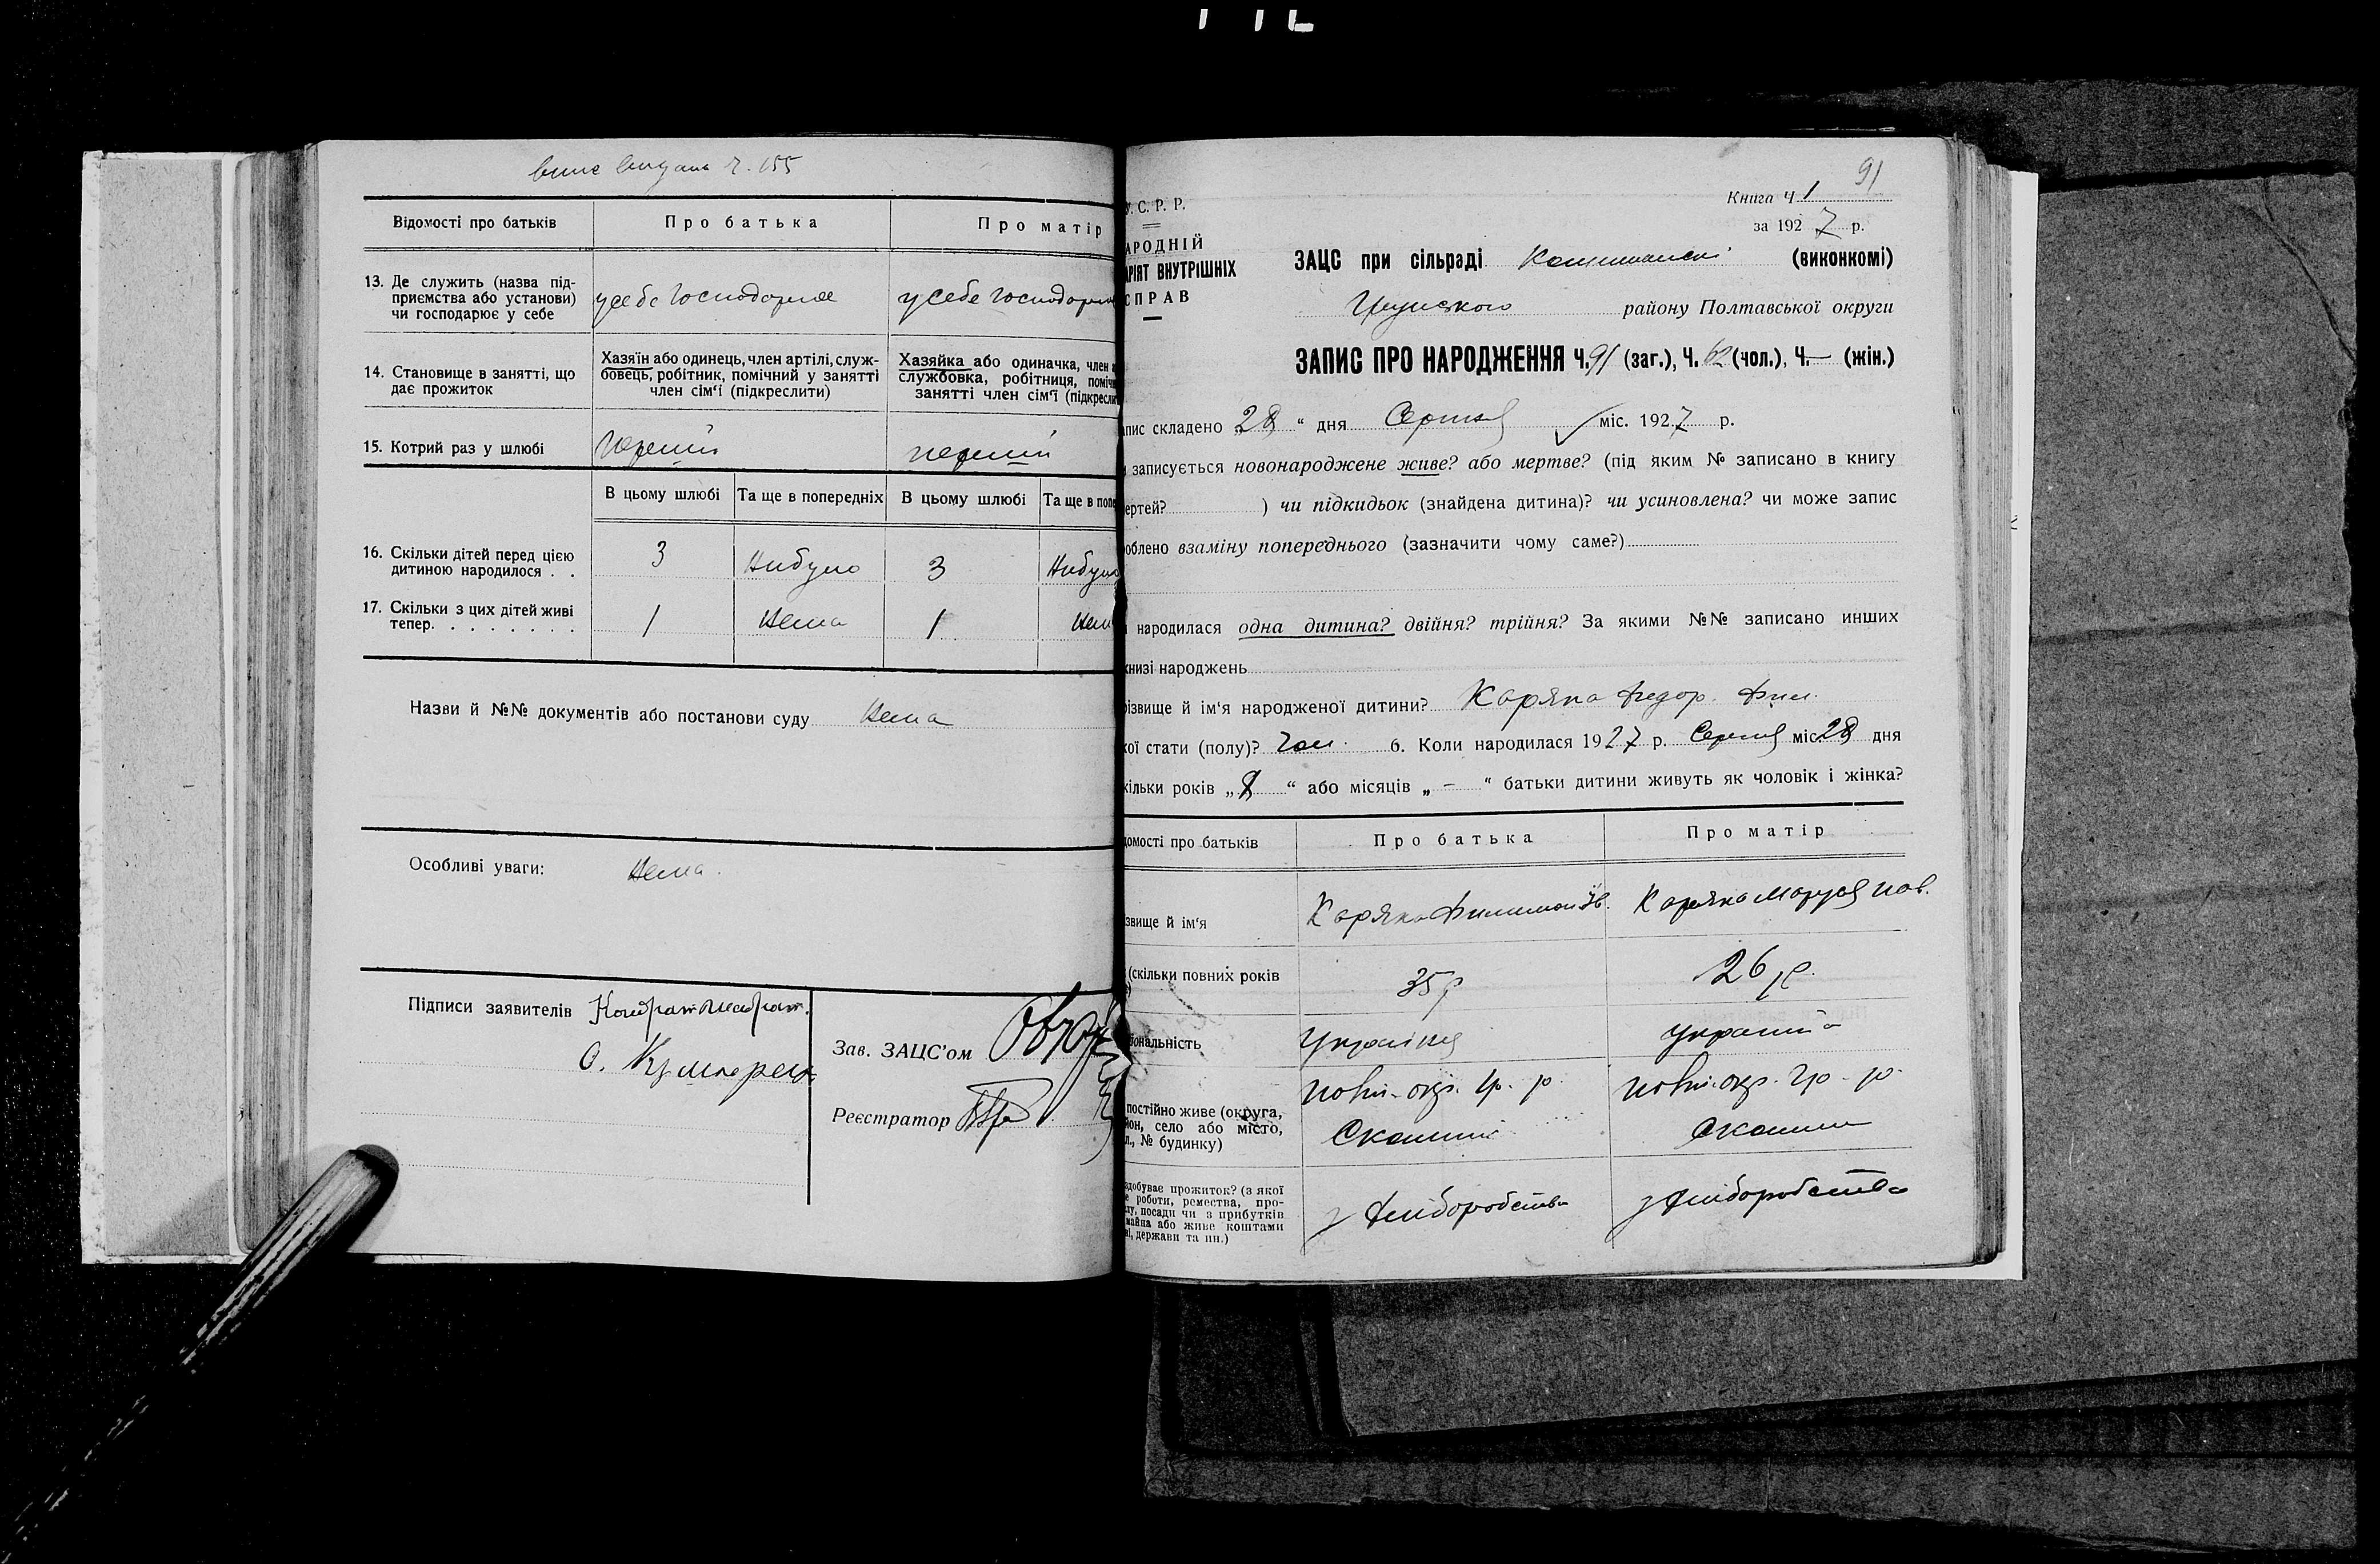 ч. 155
Відомості про батьків
Про батька
Про матір
13. Де служить (назва під-
приємства або установи)
чи господарює у себе
у себе господарює
у себе господарю
14. Становище в занятті, що
дає прожиток
Хазяїн або одинець, член артілі, служ-
бовець, робітник, помічний у занятті
член сім'ї (підкреслити)
Хазяйка або одиначка, член а
службовка, робітниця, поміч
занятті член сім'ї (підкресли
15. Котрий раз у шлюбі
перший
перший
В цьому шлюбі
Та ще в попередніх
В цьому шлюбі
Та ще в попе
16. Скільки дітей перед цією
дитиною народилося . .
3
Небуло
3
Небуло
17. Скільки з цих дітей живі
тепер. . . . . . . .
1
Нема
1
Нема
Назви й №№ документів або постанови суду Нема
Особливі уваги: Нема.
Підписи заявителів
О.
Зав. ЗАЦС'ом
Реєстратор
91
Книга Ч 1
за 1927 р.
У. С. Р. Р.
АРОДНІЙ
АРІЯТ ВНУТРІШНІХ
СПРАВ
ЗАЦС при сільраді (виконкомі)
Грунського району Полтавської округи
ЗАПИС ПРО НАРОДЖЕННЯ Ч. 91 (заг.), Ч. 62 (чол.), Ч. — (жін.)
апис складено „28“ дня Серпня міс. 1927 р.
и записується новонароджене живе? або мертве? (під яким № записано в книгу
ертей? ) чи підкидьок (знайдена дитина)? чи усиновлена? чи може запис
облено взаміну попереднього (зазначити чому саме?)
народилася одна дитина? двійня? трійня? За якими №№ записано инших
книзі народжень
різвище й ім'я народженої дитини? Каряка Федор. Фил.
кої стати (полу)? Чол. 6. Коли народилася 1927 р. Серпня міс. 28 дня
кільки років „8“ або місяців „–“ батьки дитини живуть як чоловік і жінка?
домості про батьків
Про батька
Про матір
звище й ім'я
Каряка Филимон Ів.
Каряка Маруся Пав.
(скільки повних років
35 р
26 р.
іональність
Україна
постійно живе (округа,
йон, село або місто,
л., № будинку)
Полт. окр. Гр. р.
Полт. окр. Гр. р.
добуває прожиток? (з якої
е роботи, ремества, про-
лу, посади чи з прибутків
майна або живе коштами
ні, держави та ин.)
з хліборобства
з хліборобства